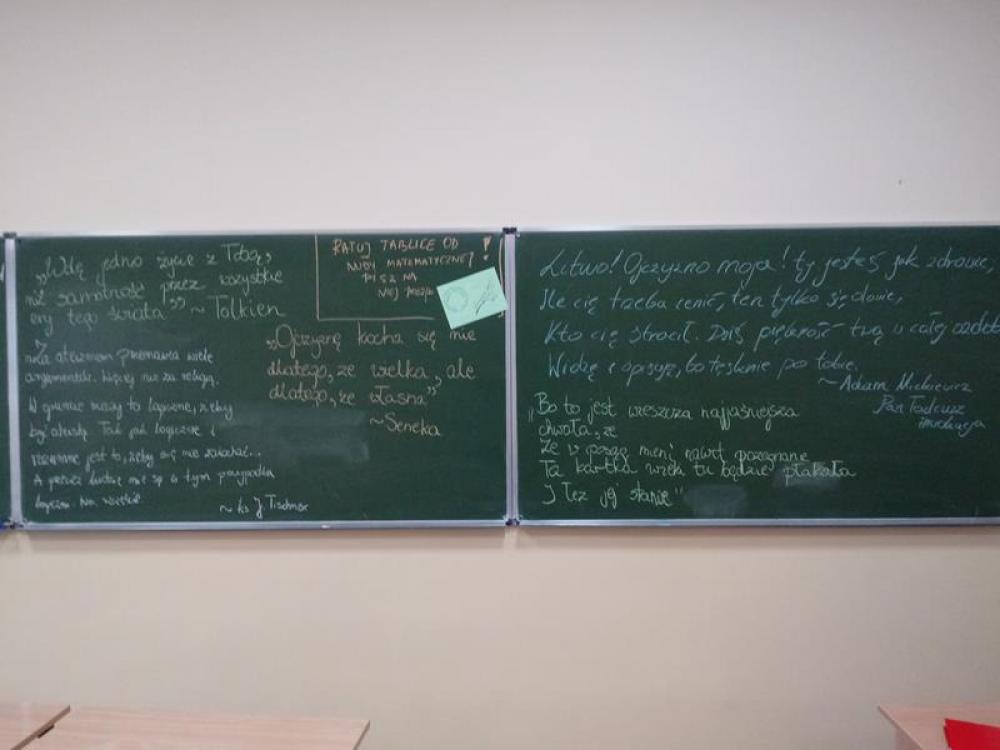 „Wolę jedno życie z Tobą,
niż samotność przez wszystkie
ery tego świata” ~ Tolkien
RATUJ TABLICE OD
NUDY MATEMATYCZNEJ!
PISZ NA
NIEJ
„Ojczyznę kocha się nie
dlatego, ze wielka, ale
dlatego, że własna”
~Seneka
Za ateizmem przemawia wiele
argumentów. Więcej niż za religią.
W gruncie rzeczy to logiczne, żeby
być ateistą. Tak jak logiczne i
rozumne jest to, żeby się nie zakochać...
A przecież ludzie nie są w tym przypadku
~ ks J Tischner
Litwo! Ojczyzno moja! ty jesteś jak zdrowie,
Ile cię trzeba cenić, ten tylko się dowie,
Kto cię stracił. Dziś piękność twą w całej ozdobie
Widzę i opisuję, bo tęsknię po tobie.
~Adam Mickiewicz
Pan Tadeusz
inwokacja
„Bo to jest wieszcza najjaśniejsza
chwała, że
Że w posąg mieni nawet pożegnanie
Ta kartka wieki tu będzie płakała
I łez jej stanie”